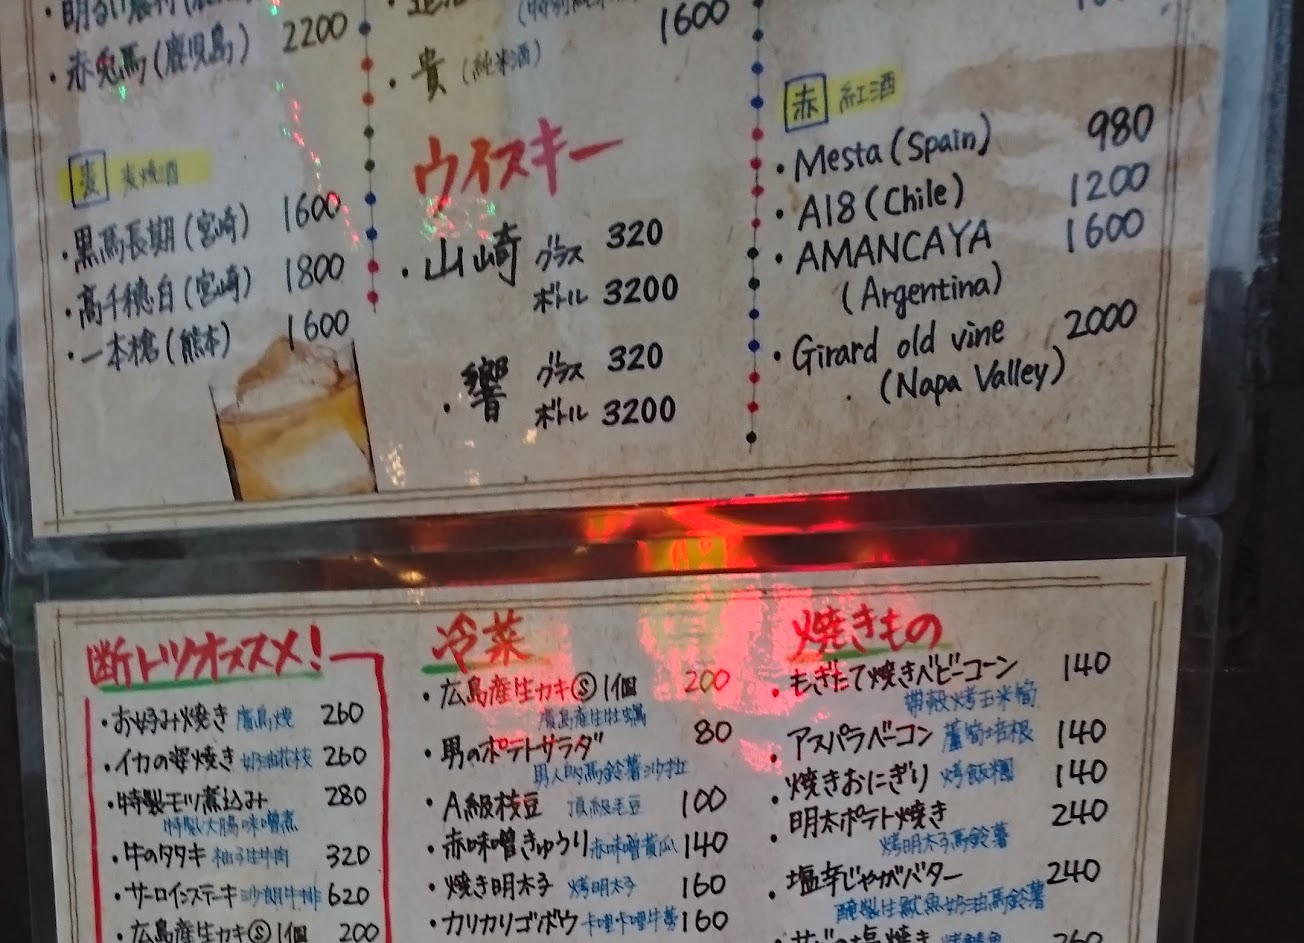 赤兎馬(鹿児島) 2200
麦 麦焼酒
・黒馬長期(宮崎) 1600
・高千穂白(宮崎) 1800
・一本槍(熊本) 1600
1600
・貴(純米酒)
ウイスキー
・山崎 グラス 320
ボトル 3200
・響 グラス 320
ボトル 3200
赤 紅酒
・Mesta(Spain) 980
・A18(Chile) 1200
・AMANCAYA 1600
(Argentina)
・Girard old vine 2000
(Napa Valley)
断トツオススメ!
・お好み焼き 廣島燒 260
・イカの姿焼き 奶油花枝 260
・特製モツ煮込み 280
特製大腸味噌煮
・牛のタタキ 柚子生牛肉 320
・サーロインステーキ 沙朗牛排 620
・広島産生カキⓈ1個 200
冷菜
・広島産生カキⓈ1個 200
廣島産生牡蠣
・男のポテトサラダ 80
男人的馬鈴薯沙拉
・A級枝豆 頂級毛豆 100
・赤味噌きゅうり 赤味噌黄瓜 140
・焼き明太子 烤明太子 160
・カリカリゴボウ 卡哩卡哩牛蒡 160
焼きもの
・もぎたて焼きベビーコーン 140
帶殻烤玉米筍
・アスパラベーコン 蘆筍培根 140
・焼きおにぎり 烤飯糰 140
・明太ポテト焼き 240
烤明太子馬鈴薯
・塩辛じゃがバター 240
醃製生魷魚奶油馬鈴薯